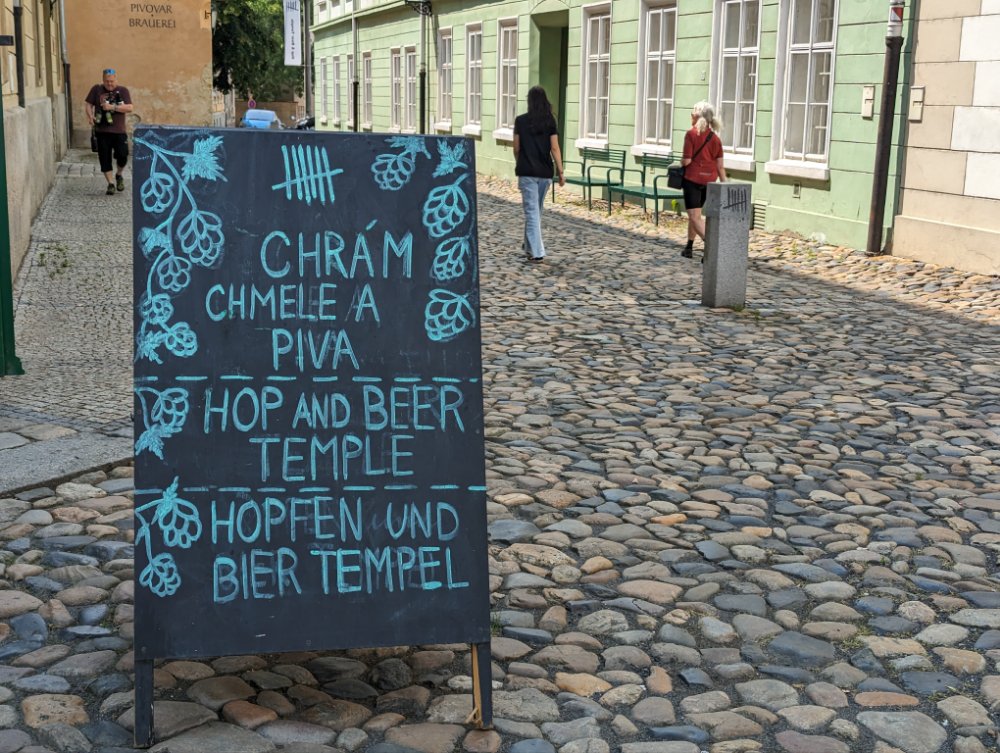 PIVOVAR
BRAUEREI
CHRÁM
CHMELE A
PIVA
HOP AND BEER
TEMPLE
HOPFEN UND
BIER TEMPEL